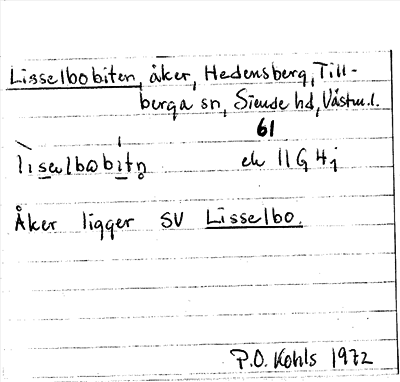 Lisselbobiten, åker, Hedensberg, Till-
berga sn, Siende hd, Västm.l.
61
lìsəlbobítn̥ ek 11G 4j
Åker ligger SV Lisselbo.
P.O. Kohls 1972